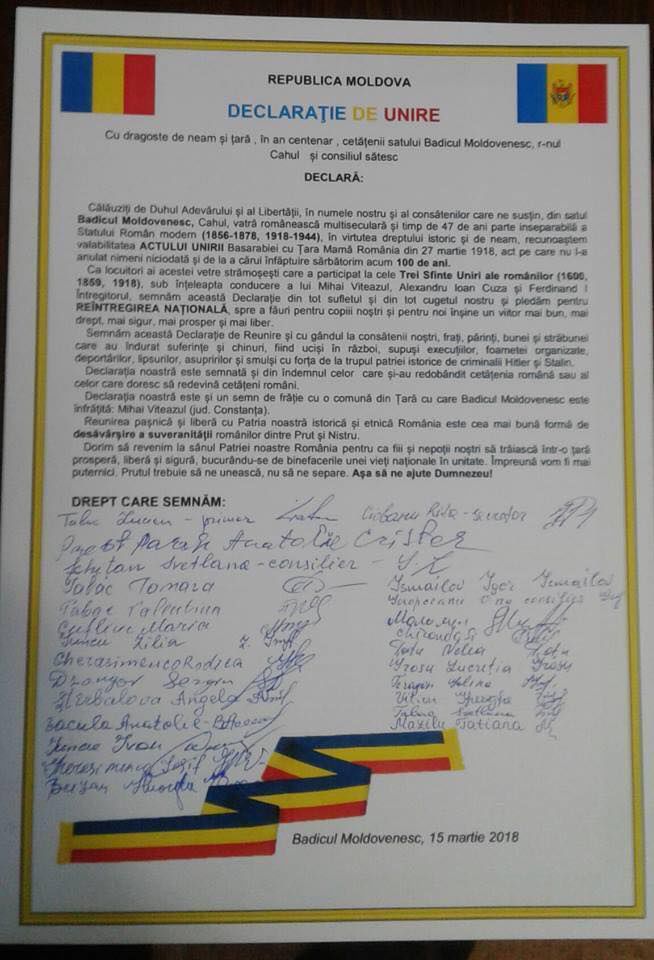 REPUBLICA MOLDOVA
DECLARAŢIE DE UNIRE
Cu dragoste de neam și țară , în an centenar , cetățenii satului Badicul Moldovenesc, r-nul
Cahul și consiliul sătesc
DECLARĂ:
Călăuziți de Duhul Adevărului și al Libertății, în numele nostru și al consătenilor care ne susțin, din satul
Badicul Moldovenesc, Cahul, vatră românească multiseculară și timp de 47 de ani parte inseparabilă a
Statului Român modern (1856-1878, 1918-1944), în virtutea dreptului istoric și de neam, recunoaștem
valabilitatea ACTULUI UNIRII Basarabiei cu Țara Mamă România din 27 martie 1918, act pe care nu l-a
anulat nimeni niciodată și de la a cărui înfăptuire sărbătorim acum 100 de ani.
Ca locuitori ai acestei vetre strămoșești care a participat la cele Trei Sfinte Uniri ale românilor (1600,
1859, 1918), sub înțeleapta conducere a lui Mihai Viteazul, Alexandru Ioan Cuza și Ferdinand I
Întregitorul, semnăm această Declarație din tot sufletul și din tot cugetul nostru și pledăm pentru
REÎNTREGIREA NAȚIONALĂ, spre a făuri pentru copiii noștri și pentru noi înșine un viitor mai bun, mai
drept, mai sigur, mai prosper și mai liber.
Semnăm această Declarație de Reunire și cu gândul la consătenii noștri, frați, părinți, bunei și străbunei
care au îndurat suferințe și chinuri, fiind uciși în război, supuși execuțiilor, foametei organizate,
deportărilor, lipsurilor, asupririlor și smulși cu forța de la trupul patriei istorice de criminalii Hitler și Stalin.
Declarația noastră este semnată și din îndemnul celor care și-au redobândit cetățenia română sau al
celor care doresc să redevină cetățeni români.
Declarația noastră este și un semn de frăție cu o comună din Țară cu care Badicul Moldovenesc este
înfrățită: Mihai Viteazul (jud. Constanța).
Reunirea pașnică și liberă cu Patria noastră istorică și etnică România este cea mai bună formă de
desăvârșire a suveranității românilor dintre Prut și Nistru.
Dorim să revenim la sânul Patriei noastre România pentru ca fiii și nepoții noștri să trăiască într-o țară
prosperă, liberă și sigură, bucurându-se de binefacerile unei vieți naționale în unitate. Împreună vom fi mai
puternici. Prutul trebuie să ne unească, nu să ne separe. Așa să ne ajute Dumnezeu!
DREPT CARE SEMNĂM:
primar
Anatolie Cristea
Svetlana - consilier
Tabac Tamara
Ismailov Igor Ismailov
Tabac Valentina
Maria
Lilia
Gherasimenco Rodica
Grosu Lucreția Grosu
Angela
Anatolie
Ivan
Maxiliu Tatiana
Badicul Moldovenesc, 15 martie 2018